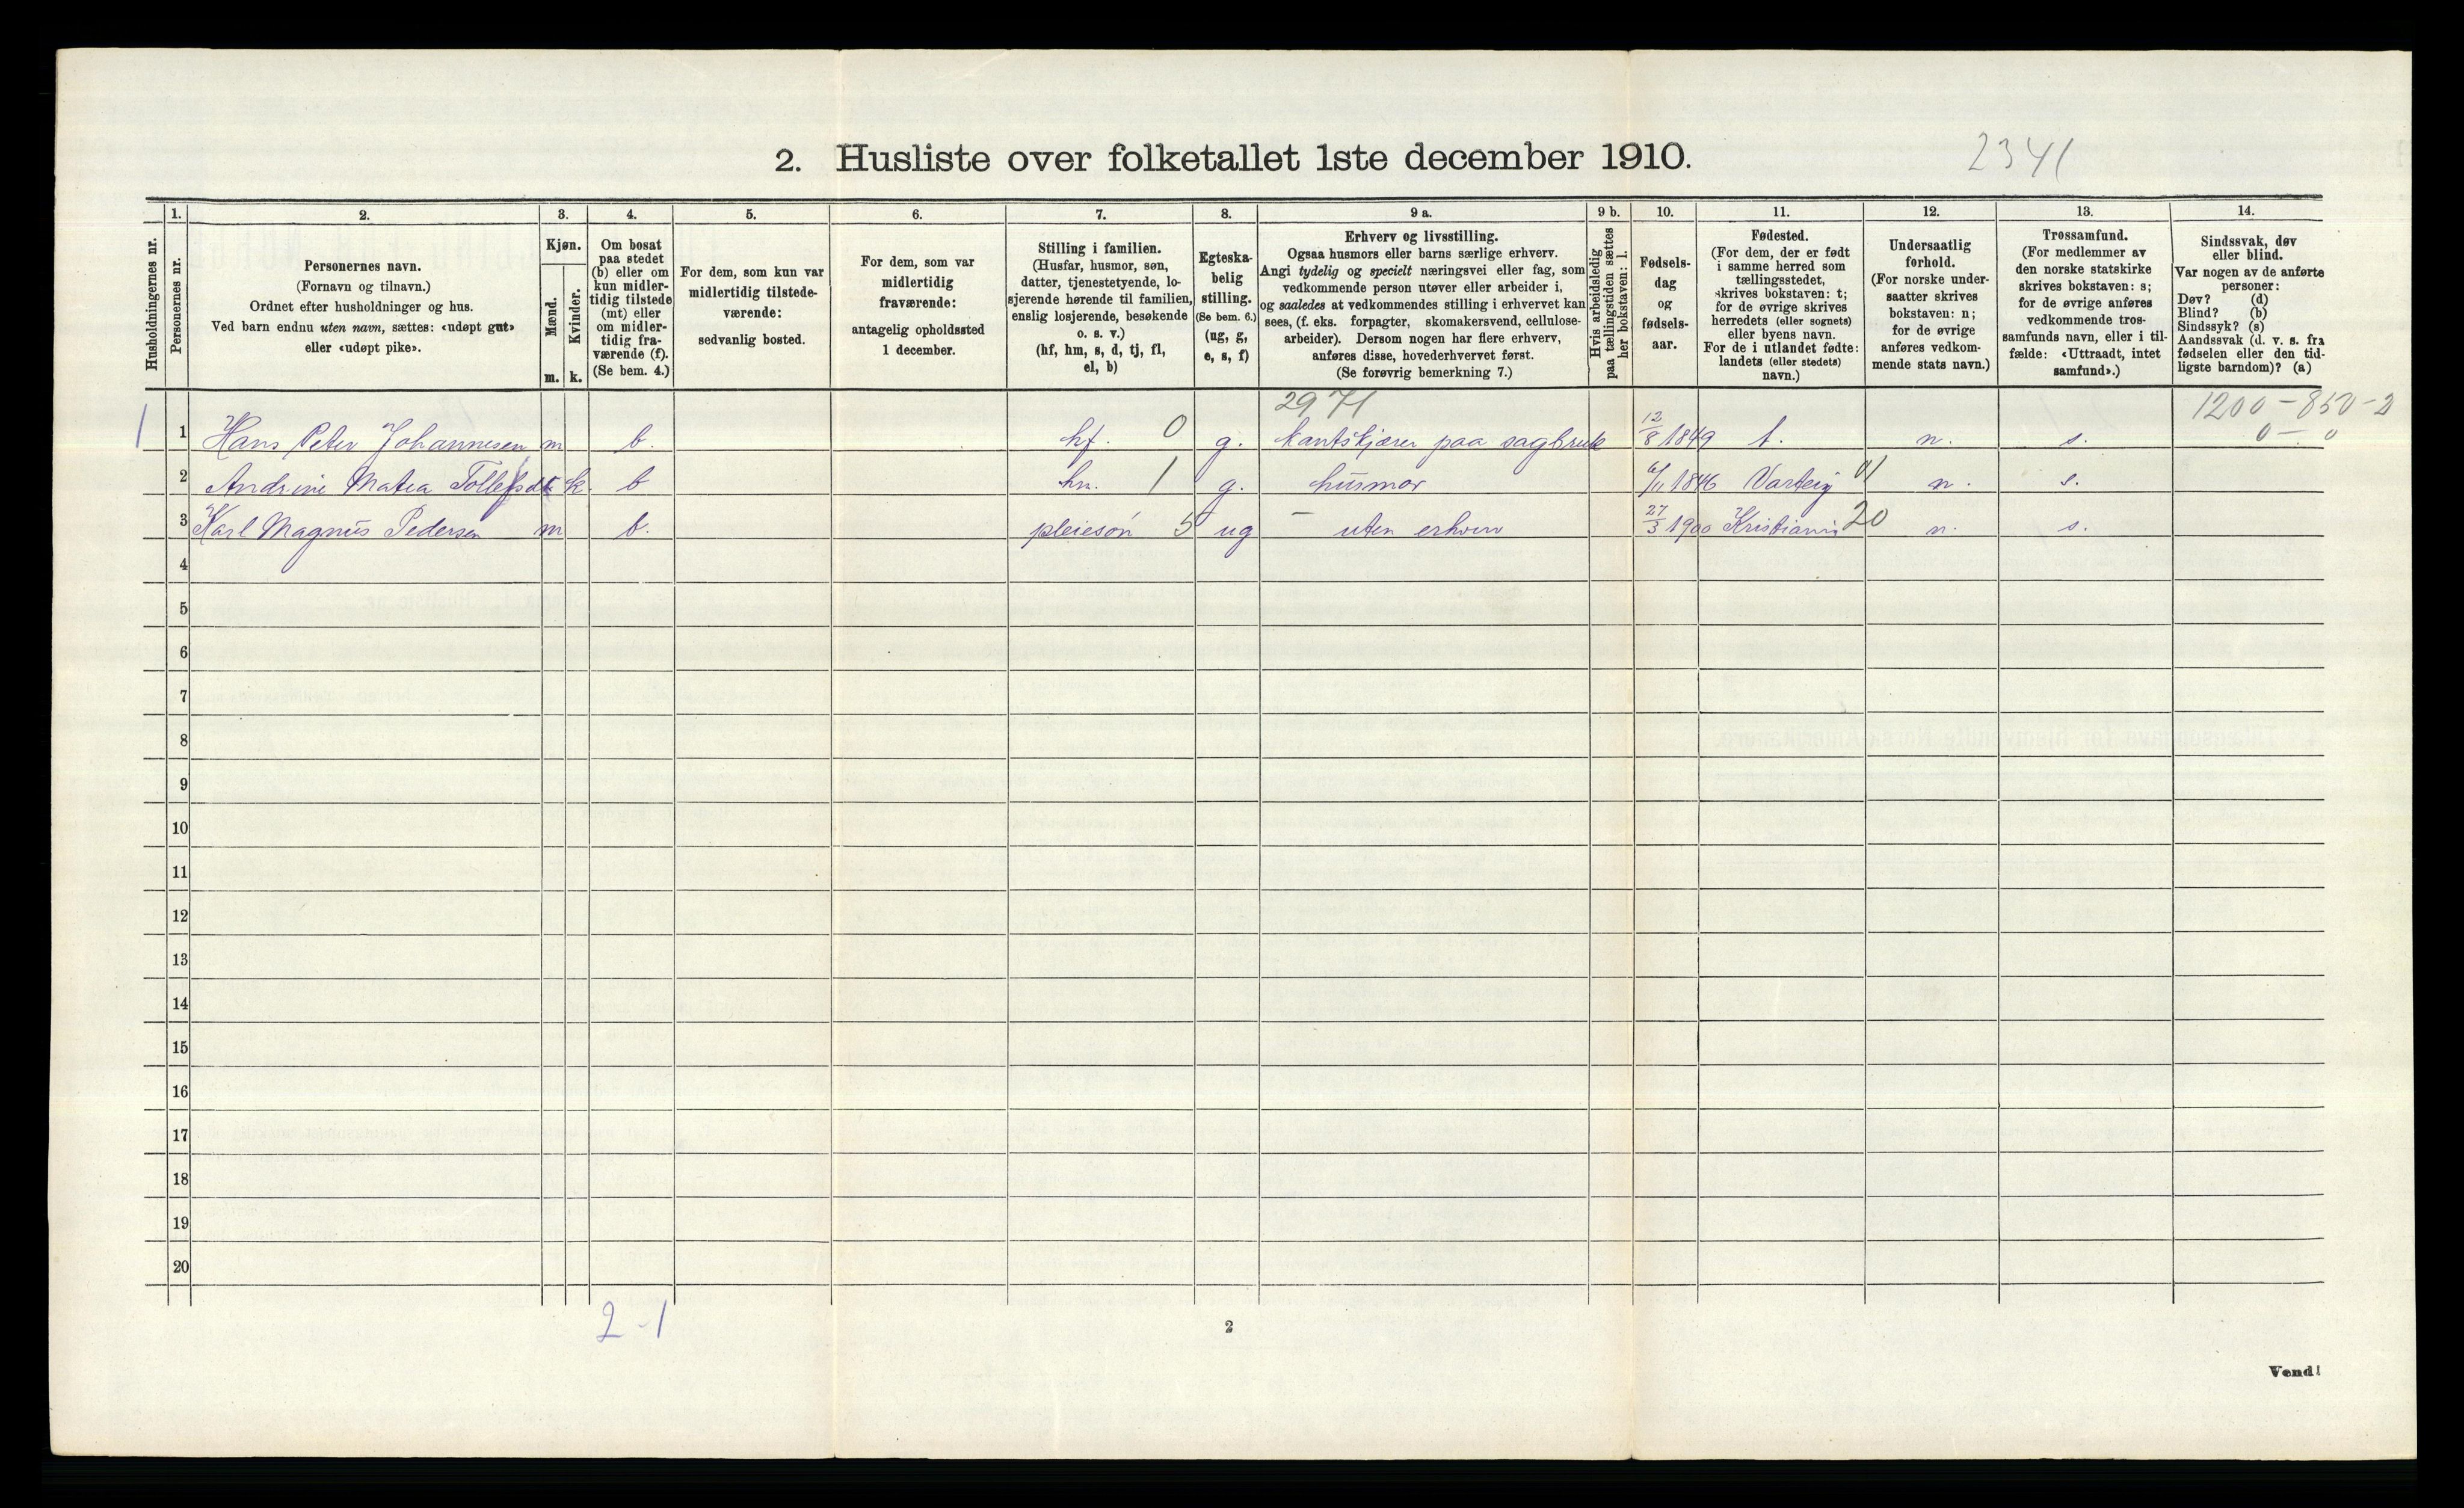 2. Husliste over folketallet 1ste december 1910.
2341
1. 2. 3. 4. 5. 6. 7. 8. 9 a. 9 b. 10. 11. 12. 13. 14.
Husholdningernes nr.
Personernes nr.
Personernes navn.
(Fornavn og tilnavn.)
Ordnet efter husholdninger og hus.
Ved barn endnu uten navn, sættes: «udøpt gut»
eller «udøpt pike».
Kjøn.
Mænd.
Kvinder.
m. k.
Om bosat
paa stedet
(b) eller om
kun midler-
tidig tilstede
(mt) eller
om midler-
tidig fra-
værende (f).
(Se bem. 4.)
For dem, som kun var
midlertidig tilstede-
værende:
sedvanlig bosted.
For dem, som var
midlertidig
fraværende:
antagelig opholdssted
1 december.
Stilling i familien.
(Husfar, husmor, søn,
datter, tjenestetyende, lo-
sjerende hørende til familien,
enslig losjerende, besøkende
o. s. v.)
(hf, hm, s, d, tj, fl,
el, b)
Egteska-
belig
stilling.
(Se bem. 6.)
(ug, g,
e, s, f)
Erhverv og livsstilling.
Ogsaa husmors eller barns særlige erhverv.
Angi tydelig og specielt næringsvei eller fag, som
vedkommende person utøver eller arbeider i,
og saaledes at vedkommendes stilling i erhvervet kan
sees, (f. eks. forpagter, skomakersvend, cellulose-
arbeider). Dersom nogen har flere erhverv,
anføres disse, hovederhvervet først.
(Se forøvrig bemerkning 7.)
Hvis arbeidsledig
paa tællingstiden sættes
her bokstaven: l.
Fødsels-
dag
og
fødsels-
aar.
Fødested.
(For dem, der er født
i samme herred som
tællingsstedet,
skrives bokstaven: t;
for de øvrige skrives
herredets (eller sognets)
eller byens navn.
For de i utlandet fødte:
landets (eller stedets)
navn.)
Undersaatlig
forhold.
(For norske under-
saatter skrives
bokstaven: n;
for de øvrige
anføres vedkom-
mende stats navn.)
Trossamfund.
(For medlemmer av
den norske statskirke
skrives bokstaven: s;
for de øvrige anføres
vedkommende tros-
samfunds navn, eller i til-
fælde: «Uttraadt, intet
samfund».)
Sindssvak, døv
eller blind.
Var nogen av de anførte
personer:
Døv? (d)
Blind? (b)
Sindssyk? (s)
Aandssvak (d. v. s. fra
fødselen eller den tid-
ligste barndom)? (a)
2971 1200-850-2
1 1 Hans Peter Johannesen m b. hf. 0 g. kantskjærer paa sagbruk 12/8 1849 t. n. s. 0-0
2 Andrine Matea Tollefsdt k. b hm. 1 g. husmor 6/11 1846 Varteig 01 n. s.
3 Karl Magnus Pedersen m b. pleiesön 5 ug - uten erhverv 27/3 1900 Kristiania 20 n. s.
4
5
6
7
8
9
10
11
12
13
14
15
16
17
18
19
20
2-1
2
Vend!